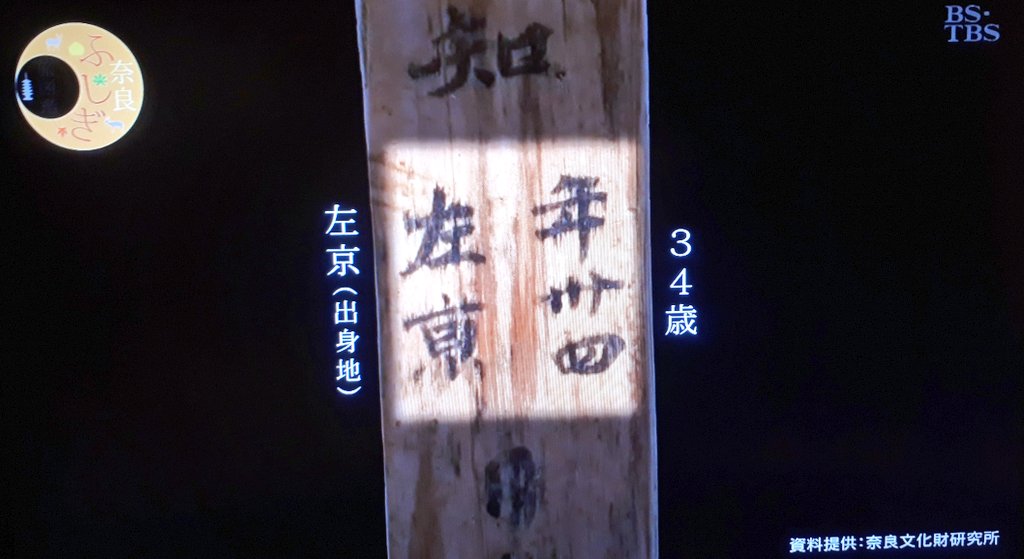 奈良
ふしぎ
BS・
TBS
知
年卅四
左京
３４歳
左京（出身地）
資料提供：奈良文化財研究所